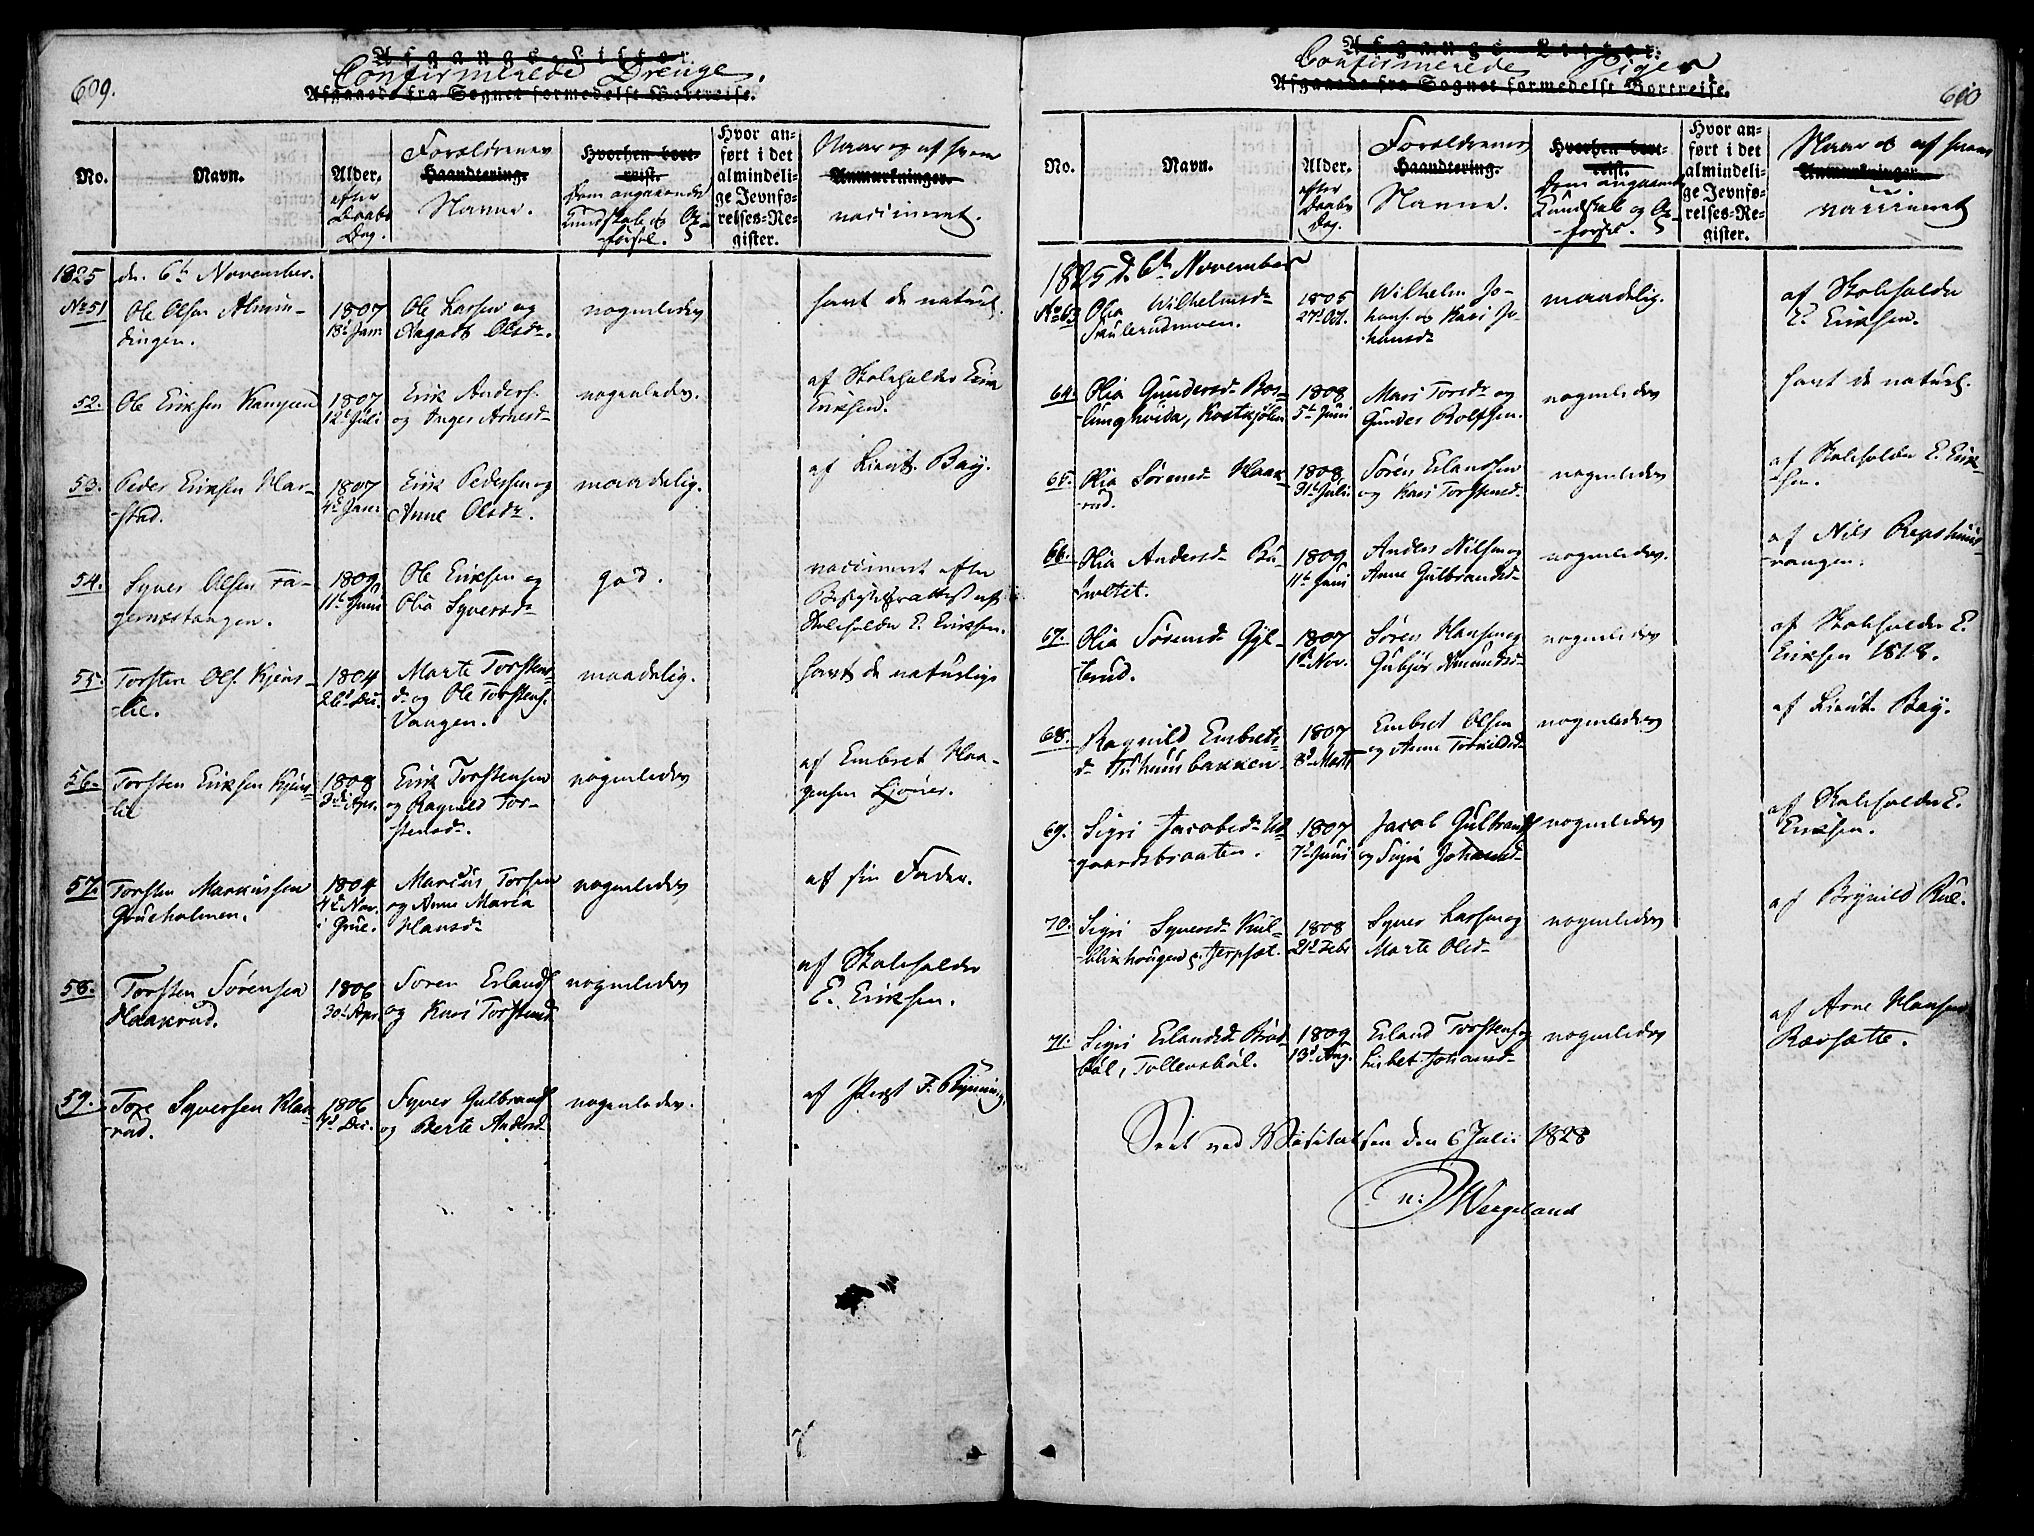 609.
Afgangs-Lister.
Confirmerede Drenge.
Afgaaede fra Sognet formedelst Bortreise.
No.
Navn.
Alder.
efter
Daabs
Dag.
Forældrenes
Haandtering.
Navne.
Hvorhen bort-
reist.
Dom angaaende
Kundskab og Op-
førsel.
Hvor an-
ført i det
almindeli-
ge Jevnfø-
relses-Re-
gister.
Naar og af hvem
Anmærkninger.
vaccineret.
1825 d. 6t November.
No 51 Ole Olsen Almin-
dingen.
1807
18d Jan.
Ole Larsen og
Aagodt Olsdr.
nogenledes
havt de naturl.
52. Ole Eriksen
1807
12t Juli
Erik Anders.
og Inger Arnesd
nogenledes.
af Skoleholder Erik
Eriksen.
53. Peder Eriksen Har-
stad.
1807
4d Jan.
Erik Pedersen og
Anne Olsdr.
maadelig.
af Lieut. Bay.
54. Syver Olsen Fa-
gernæstangen.
1809
11t Juni
Ole Eriksen og
Olia Syversd
god.
vaccineret efter
af
Skoleholder E. Eriksen.
55. Torsten Ols. Kjens-
lie.
1804
26d Dec.
Marte Torstens-
d. og Ole Torstens.
Vangen.
maadelig.
havt de naturlige
56. Torsten Eriksen Kjens-
lie
1808
3d Apr.
Erik Torstensen
og Ragnild Tor-
stensd.
nogenledes
af Embret Haa-
gensen Lioner.
57. Torsten Markussen
Grueholmen.
1804
4d Nov.
i Grue.
Marcus Torsen
og Anne Maria
Hansd
nogenledes
af sin Fader.
58. Torsten Sørensen
Haakrud.
1806
30t Apr.
Soren Erlands
og Kari Torstensd
nogenledes
af Skoleholder
E. Eriksen.
59. Tore Syversen Klae-
rud.
1806
7d Dec.
Syver Gulbrands
og Berte Andersd
nogenledes.
af Præst F. Rynning.
610
Afgangs-Lister.
Confirmerede Piger
Afgaaede fra Sognet formedelst Bortreise.
No.
Navn.
Alder.
efter
Daabs
Dag.
Forældrenes
Haandtering.
Navne.
Hvorhen bort-
reist.
Dom angaaende
Kundskab og Op-
førsel.
Hvor an-
ført i det
almindeli-
ge Jevnfø-
relses-Re-
gister.
Naar og af hvem
Anmærkninger.
vaccineret
1825 d. 6t November
No 63 Olia Wilhelmsd
1805
27d Oct.
Wilhelm Jo-
hans. og Kari Jo-
hansd
maadelig.
af Skoleholder
E. Eriksen.
64. Olia Gundersd
1808
5t Juni
Mari Toresdr og
Gunder Rolfsen.
nogenledes
havt de naturl.
65. Olia Sørensd Haak-
rud.
1808
31t Juli
Søren Erlandsen
og Kari Torstensd
nogenledes
af Skoleholder E. Erik-
sen.
66. Olia Andersd
1809
11t Juni
Anders Nilsen og
Anne Gulbrandsd
nogenledes.
af Nils
vangen.
67. Olia Sørensd Gyl-
terud.
1807
1d Nov.
Søren Hansen og
Gubjør Amundsd
nogenledes
af Skoleholder E.
Eriksen 1818.
68. Ragnild Embrets-
d. Tuhuusbakken.
1807
8d Marts
Embret Olsen
og Anne Torkildsd
nogenledes
af Lieut. Bay.
69. Sigri Jacobsd Ud-
gaardsbraaten.
1807
7d Juni
Jacob Gulbrands
og Sigri Johansd
nogenledes
af Skoleholder E.
Eriksen.
70. Sigri Syversd Kul-
blikhougen p. Jerpset.
1808
21d Febr
Syver Larsen og
Marte Olsd
nogenledes
af Brynild Rue.
71. Sigri Erlandsd Brod-
bøl, Tollevsbøl.
1809
13d Aug.
Erland Torstens. og
Lisbet Johansd
nogenledes
af Arne Hansen
Rævsætte.
Seet ved Visitatsen den 6 Julii 1828
N: Wergeland